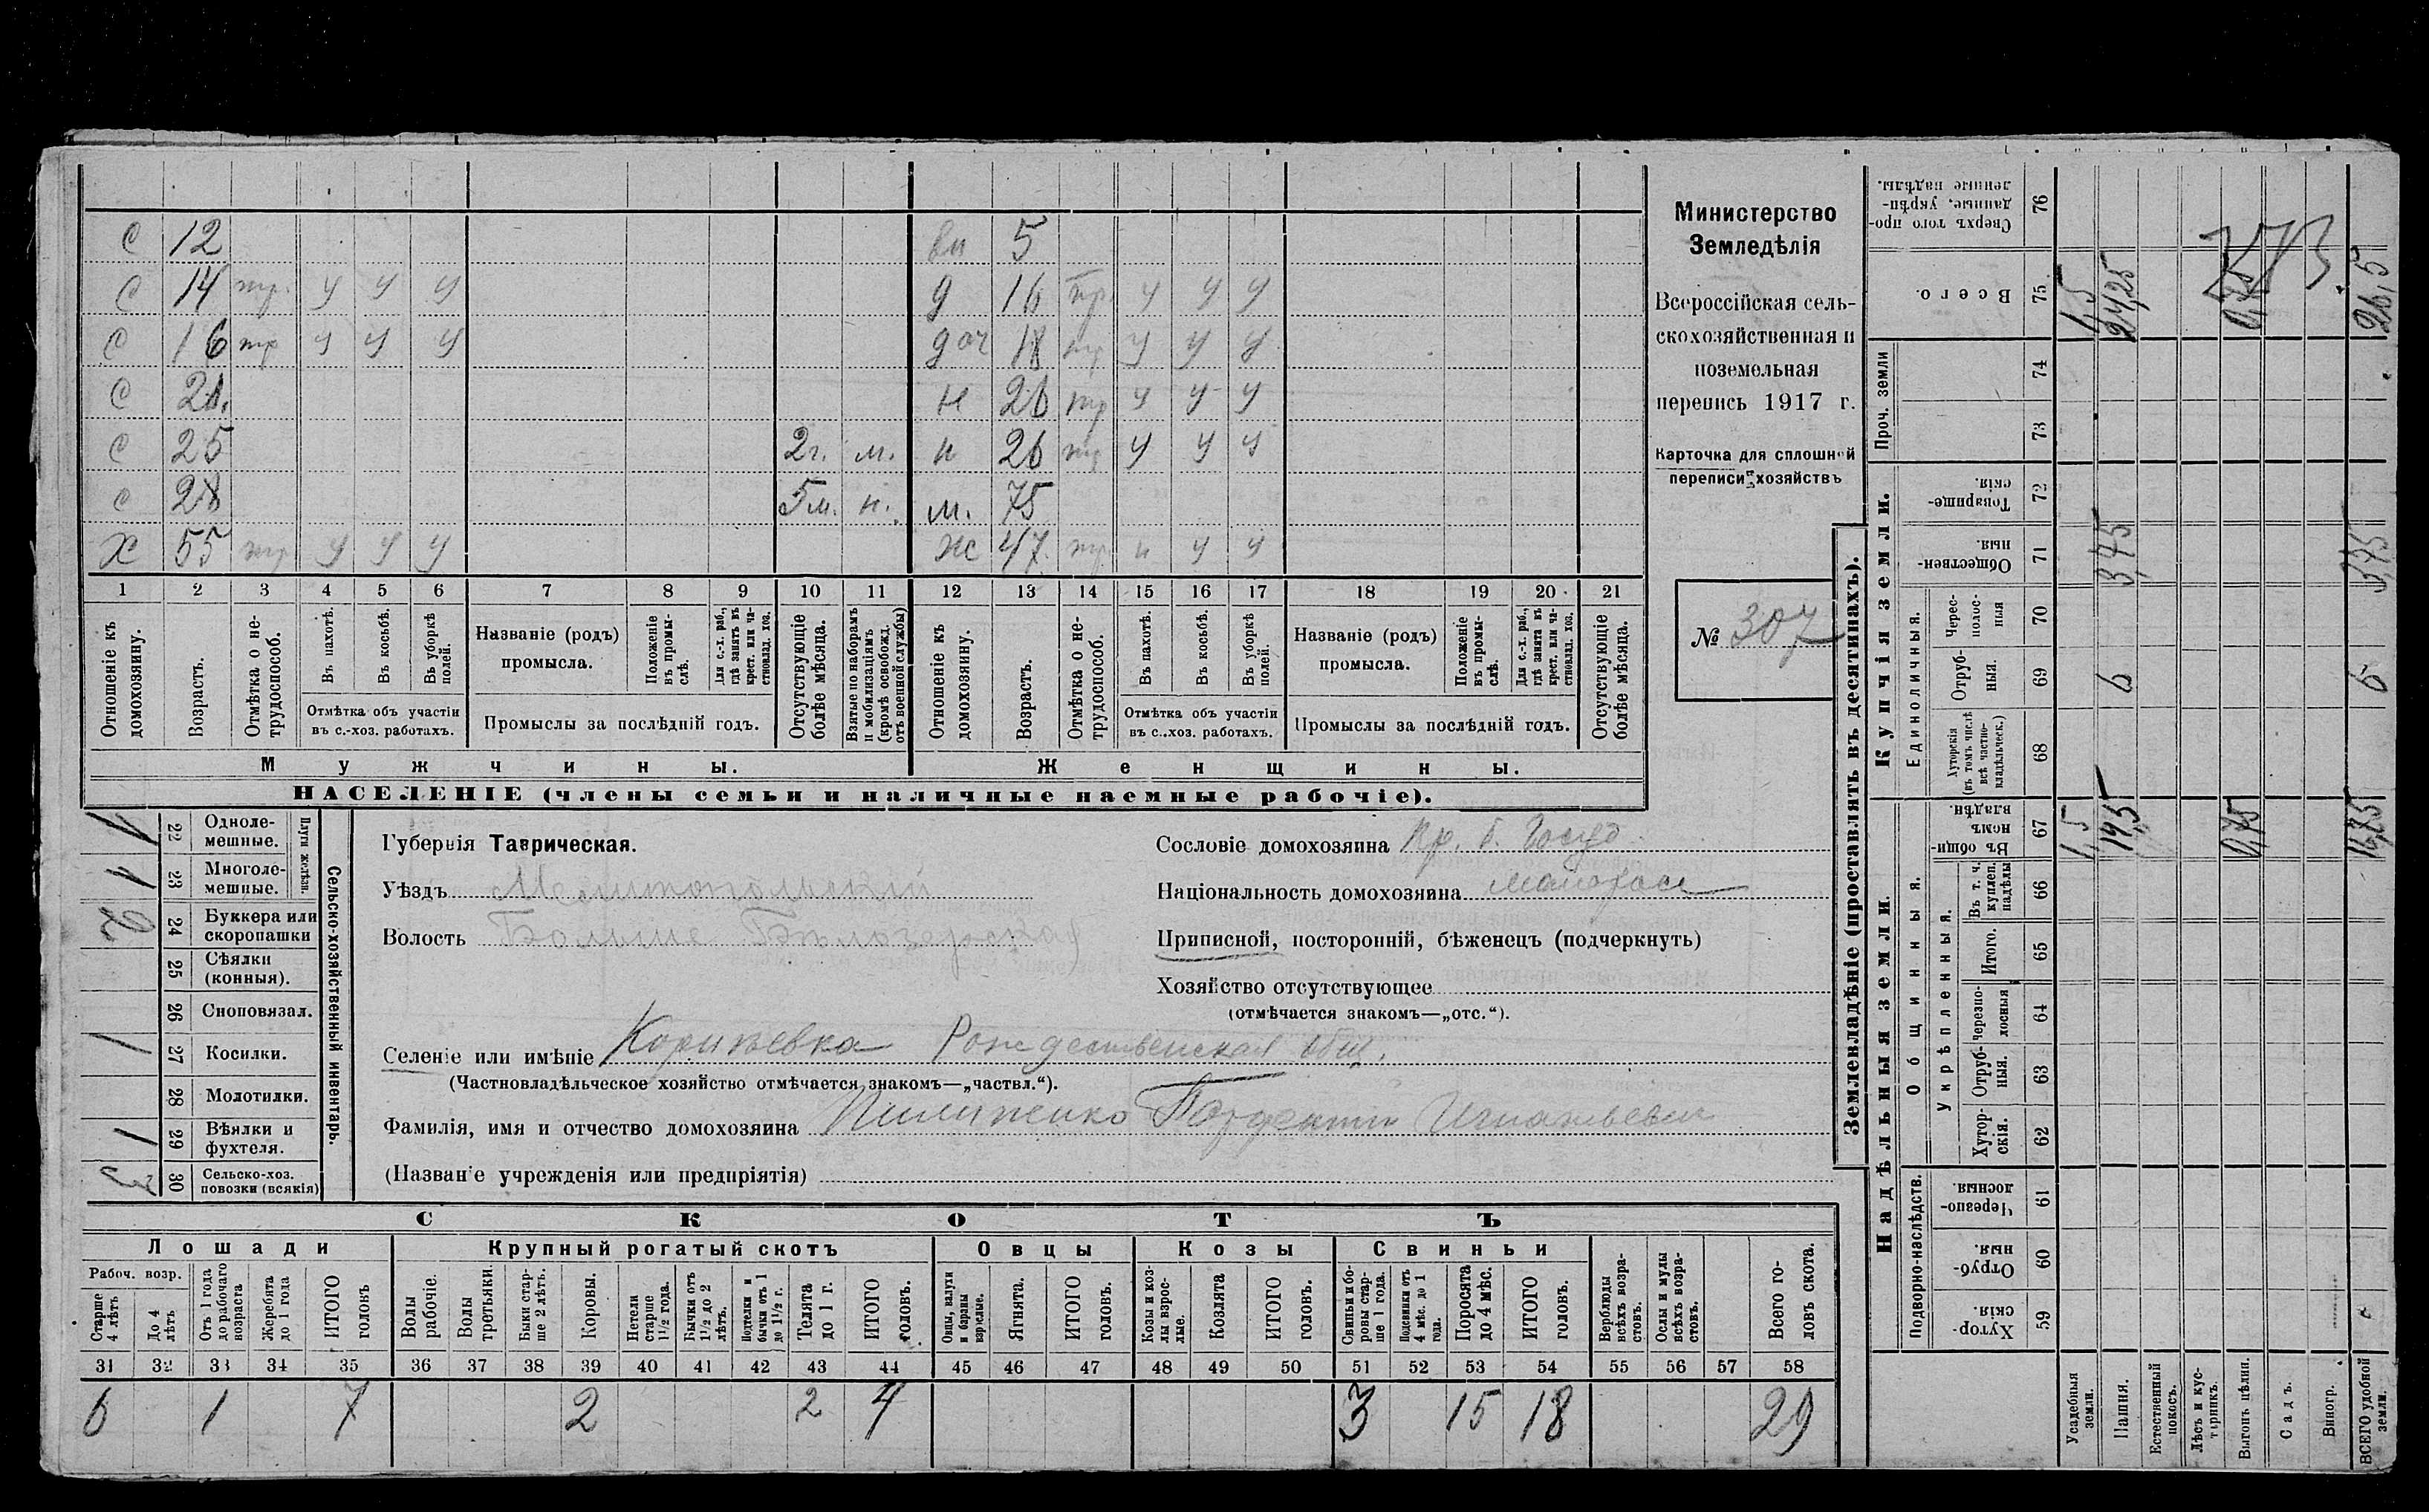 с 12 вн 5
с 14 тр. у у у д 16 тр. у у у
с 16 тр у у у доч 18 тр у у у
с 21. н 26 тр у у у
с 25 2г. м. н 26 тр у у у
с 28 5м. н. м. 75
х 55 тр у у у ж 47 тр. н у у
1 2 3 4 5 6 7 8 9 10 11 12 13 14 15 16 17 18 19 20 21
Отношеніе къ домохозяину.
Возрастъ.
Отмѣтка о нетрудоспособ.
Въ пахотѣ.
Въ косьбѣ.
Въ уборкѣ полей.
Отмѣтка объ участіи
въ с.-хоз. работахъ.
Названіе (родъ)
промысла.
Положеніе въ промыслѣ.
Для с.-х. раб., гдѣ занятъ въ крест. или частновлад. хоз.
Промыслы за послѣдній годъ.
Отсутствующіе болѣе мѣсяца.
Взятые по наборамъ и мобилизаціямъ (кромѣ освобожд. отъ военной службы)
Отношеніе къ домохозяину.
Возрастъ.
Отмѣтка о нетрудоспособ.
Въ пахотѣ.
Въ косьбѣ.
Въ уборкѣ полей.
Отмѣтка объ участіи
въ с.-хоз. работахъ.
Названіе (родъ)
промысла.
Положеніе въ промыслѣ.
Для с.-х. раб., гдѣ занята въ крест. или частновлад. хоз.
Промыслы за послѣдній годъ.
Отсутствующіе болѣе мѣсяца.
Мужчины.
Женщины.
НАСЕЛЕНІЕ (члены семьи и наличные наемные рабочіе).
Министерство
Земледѣлія
Всероссійская сель-
скохозяйственная и
поземельная
перепись 1917 г.
Карточка для сплошной
переписи хозяйствъ
№ 307
Сельско-хозяйственный инвентарь.
Плуги желѣзн.
1 22 Однолемешные.
1 23 Многолемешные.
2 24 Буккера или скоропашки
25 Сѣялки (конныя).
26 Сноповязал.
1 27 Косилки.
28 Молотилки.
1 29 Вѣялки и фухтеля.
3 30 Сельско-хоз. повозки (всякія)
Губернія Таврическая.
Уѣздъ Мелитопольскій
Волость Больше Бѣлозерская
Сословіе домохозяина Кр. б. Госуд.
Національность домохозяина малоросс
Приписной, посторонній, бѣженецъ (подчеркнуть)
Хозяйство отсутствующее
(отмѣчается знакомъ—„отс.“).
Селеніе или имѣніе Корнѣевка Рождественская общ.
(Частновладѣльческое хозяйство отмѣчается знакомъ—„частвл.“).
Фамилія, имя и отчество домохозяина Пилипенко Игнатьевич
(Названіе учрежденія или предпріятія)
СКОТЪ
Лошади
Крупный рогатый скотъ
Овцы
Козы
Свиньи
Рабоч. возр.
Старше 4 лѣтъ
До 4 лѣтъ
Отъ 1 года до рабочаго возраста
Жеребята до 1 года
ИТОГО головъ
Волы рабочіе.
Волы третьяки.
Быки старше 2 лѣтъ.
Коровы.
Нетели старше 1 1/2 года.
Бычки отъ 1 1/2 до 2 лѣтъ.
Подтелки и бычки отъ 1 до 1 1/2 г.
Телята до 1 г.
ИТОГО головъ.
Овцы, валухи и бараны взрослые.
Ягнята.
ИТОГО головъ.
Козы и козлы взрослые.
Козлята
ИТОГО головъ.
Свиньи и боровы старше 1 года.
Подсвинки отъ 4 мѣс. до 1 года.
Поросята до 4 мѣс.
ИТОГО головъ.
Верблюды всѣхъ возрастовъ.
Ослы и мулы всѣхъ возрастовъ.
Всего головъ скота.
31 32 33 34 35 36 37 38 39 40 41 42 43 44 45 46 47 48 49 50 51 52 53 54 55 56 57 58
6 1 7 2 2 4 3 15 18 29
Землевладѣніе (проставлять въ десятинахъ).
Надѣльныя земли.
Купчія земли.
Проч. земли
Подворно-наслѣдств.
Общинныя.
Укрѣпленныя.
Единоличныя.
Хуторскія. 59
Отрубныя. 60
Черезполосныя. 61
Хуторскія. 62
Отрубныя. 63
Черезполосныя 64
Итого. 65
Въ т. ч. куплен. надѣлы 66
Въ общинномъ владѣн. 67
Хуторскія (въ томъ числѣ всѣ частновладѣльческ.) 68
Отрубныя. 69
Черезполосныя 70
Общественныя. 71
Товарищескія. 72
73
74
Всего. 75
Сверхъ того проданные, укрѣпленные надѣлы. 76
Усадебныя земли. 1,5 1,5
Пашня. 14,5 6 3,75 24,25
Естественный покосъ.
Лѣсъ и кустарникъ.
Выгонъ цѣлин. 0,75 0,75
Садъ.
Виногр.
ВСЕГО удобной земли. 16,75 6 3,75 26,5